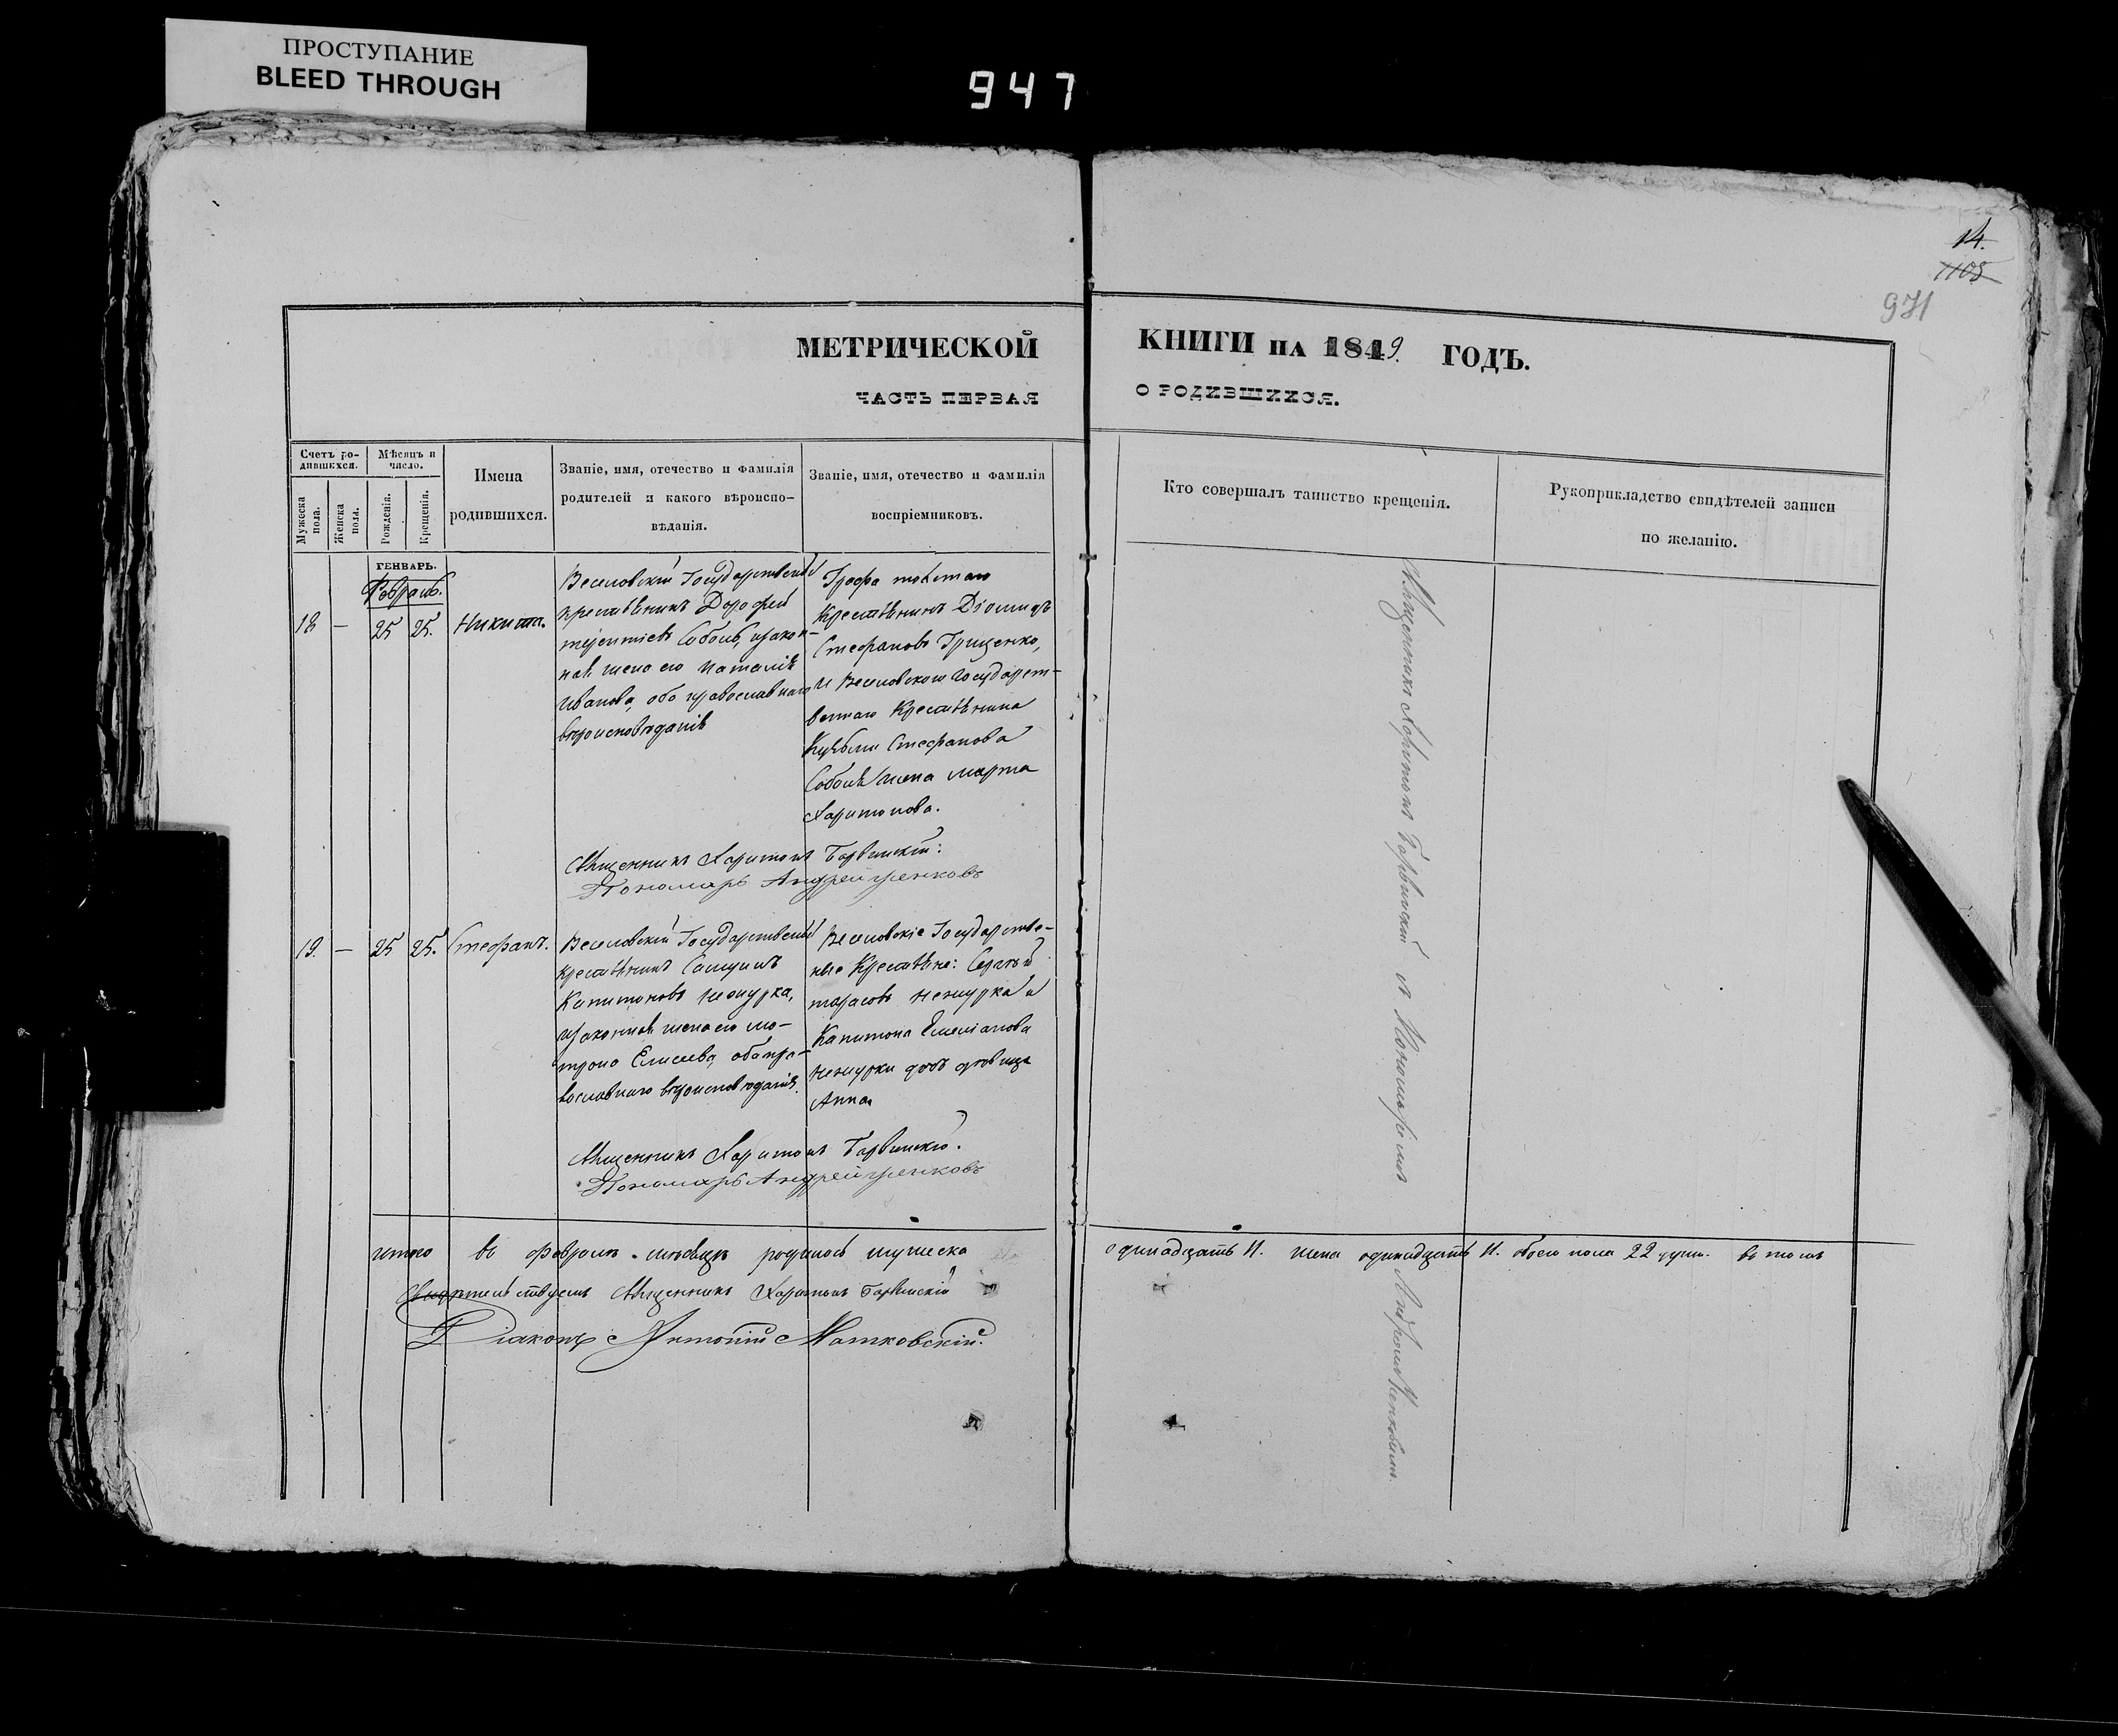 ПРОСТУПАНИЕ
BLEED THROUGH
947
14.
1105
971
МЕТРИЧЕСКОЙ КНИГИ НА 1849. ГОДЪ.
ЧАСТЬ ПЕРВАЯ О РОДИВШИХСЯ.
Счетъ ро-
дившихся.
Мужеска пола.
Женска пола.
Мѣсяцъ и
число.
Рожденія.
Крещенія.
Имена
родившихся.
Званіе, имя, отечество и фамилія
родителей и какого вѣроиспо-
вѣданія.
Званіе, имя, отечество и фамилія
воспріемниковъ.
Кто совершалъ таинство крещенія.
Рукоприкладство свидѣтелей записи
по желанію.
ГЕНВАРЬ.
Февраль.
18 — 25 25. Никита.
Веселовскій Государственный
крестьянинъ Дорофей
Соболь, закон-
ная жена его Наталія
Иванова, оба православнаго
вѣроисповѣданія
Графа
Крестьянинъ Діомидъ
Стефановъ Грищенко,
и Веселовскаго Государст-
веннаго Крестьянина
Стефанова
Соболя жена Марта
Харитонова.
Священникъ Харитонъ Барвинскій:
Пономарь Андрей Ценковъ
19. — 25 25. Стефанъ.
Веселовскій Государственный
крестьянинъ Самуилъ
Капитоновъ Ненцурка,
законная жена его Мо-
трона Елисеева, оба пра-
вославнаго вѣроисповѣданія.
Веселовскіе Государстве-
ные Крестьяне:
Тарасовъ Ненцурка и
Капитона Емеліанова
Ненцурки дочь дѣвица
Анна
Священникъ Харитонъ Барвинскій.
Пономарь Андрей Ценковъ
Священникъ Харитонъ Барвинскій съ Пономаремъ
Итого въ Февралѣ мѣсяцѣ родилось мужеска одинадцать 11. женска одинадцать 11. обоего пола 22 души. въ томъ
свидѣтельствуемъ Священникъ Харитонъ Барвинскій
Діаконъ Антоній Матковскій.